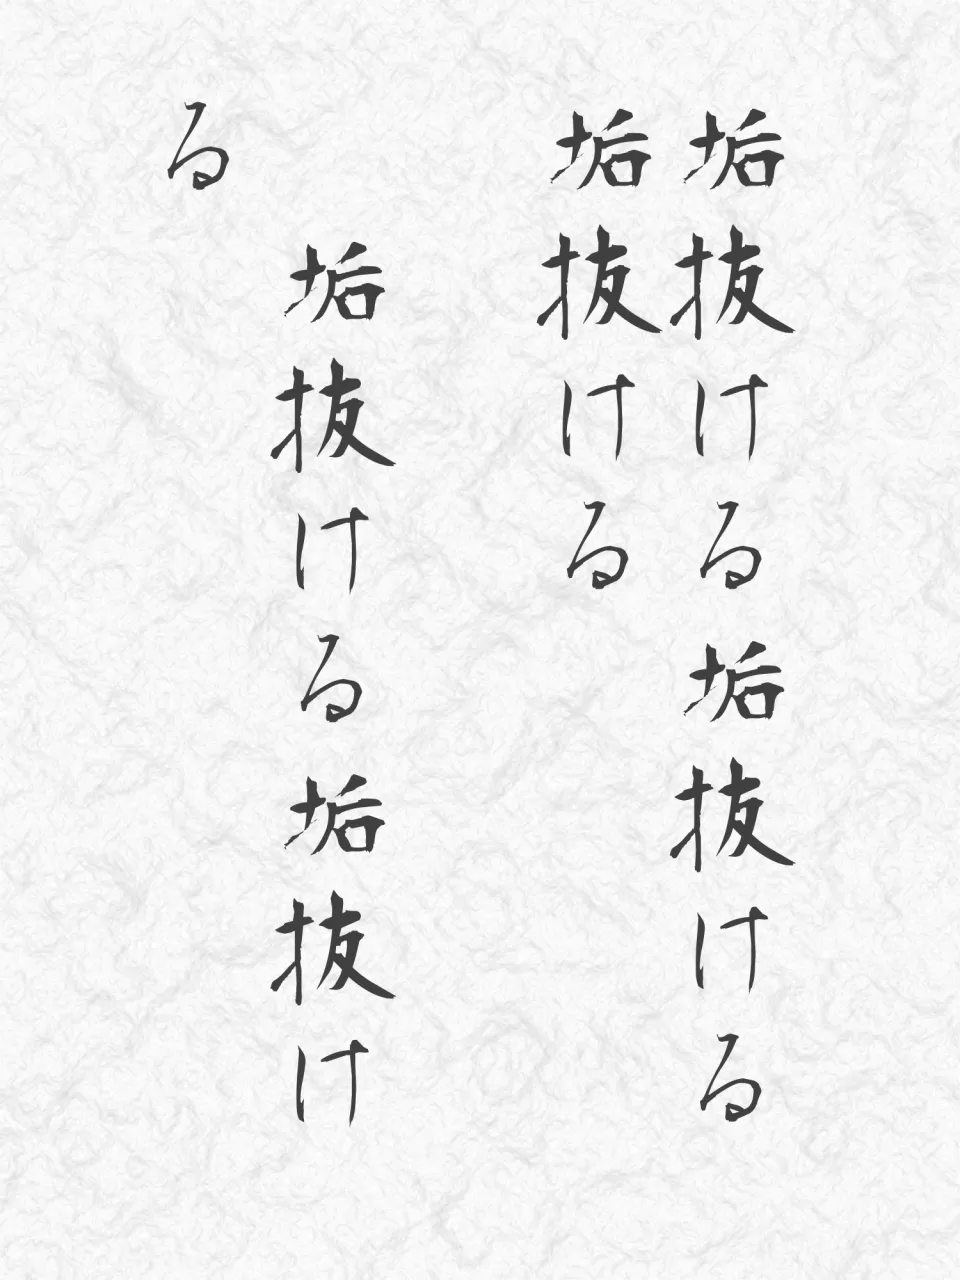 垢抜ける垢抜ける
垢抜ける
垢抜ける垢抜け
る